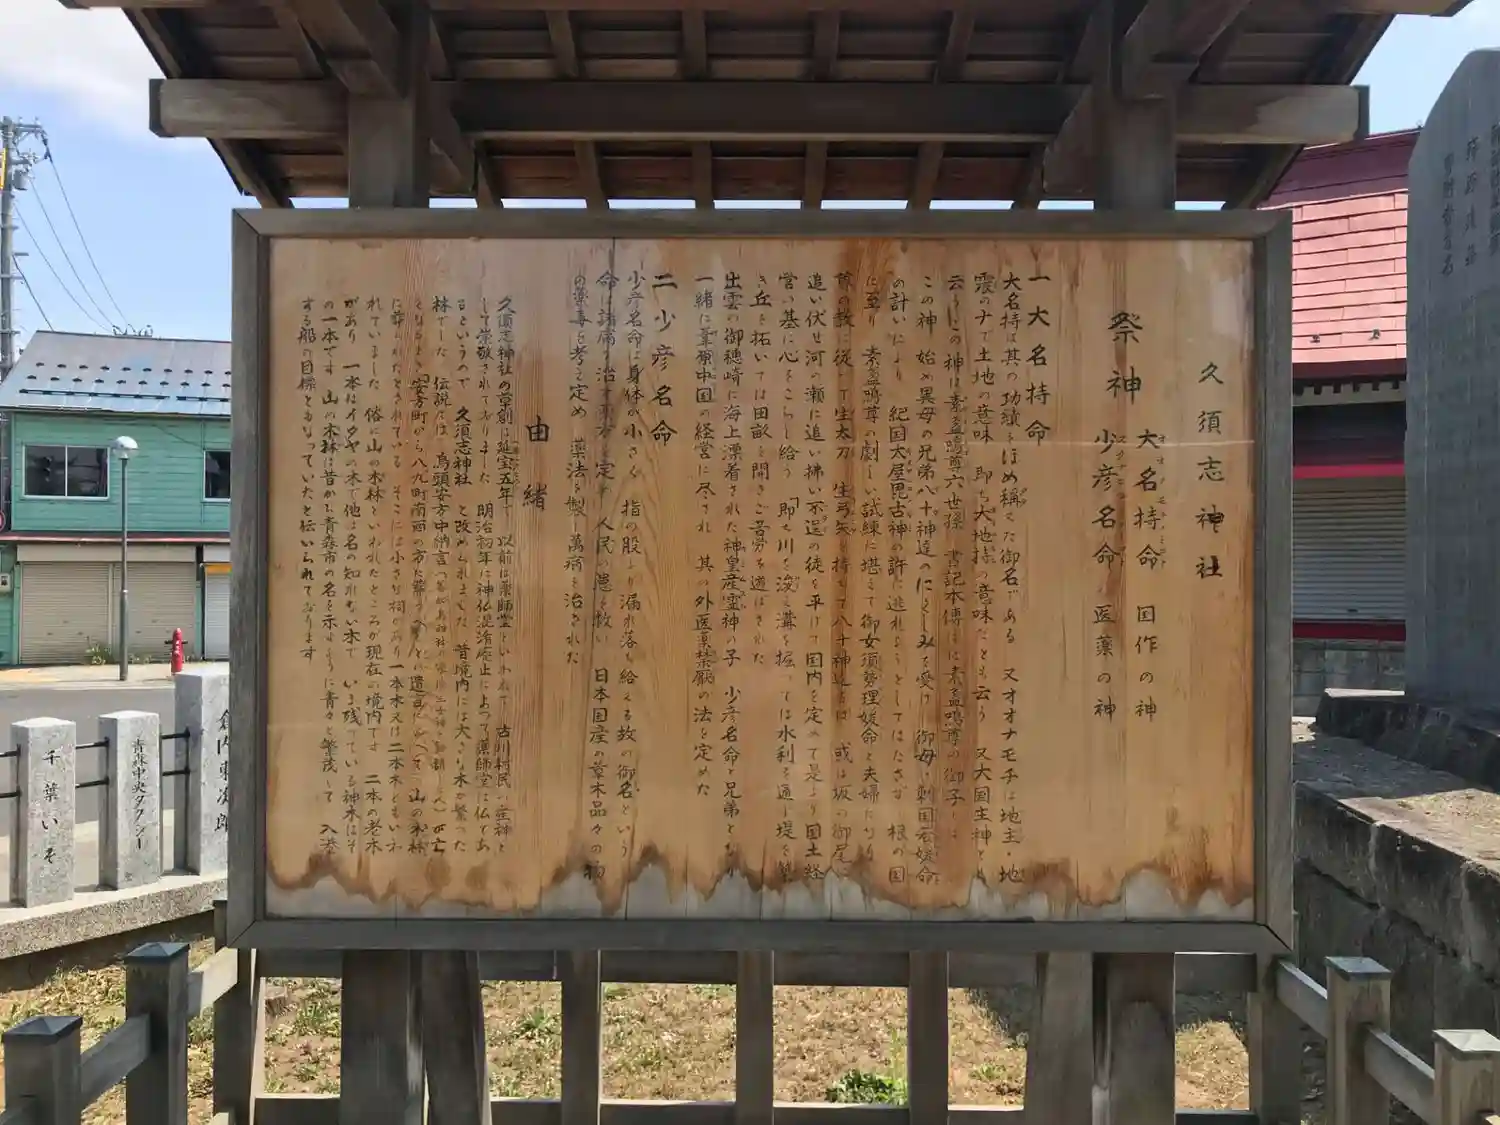 久須志神社
祭神
大名持命 国作の神
少彦名命 医薬の神
一大名持命
大名持は其の功績をほめ称えた御名である 又オオナモチは地主・地
霊のナで土地の意味 即ち大地持の意味だとも云う 又大国主神とも
云う この神は素盞鳴尊六世孫 書記本傳には素盞鳴尊の御子
この神 始め異母の兄弟八十神達のにくしみを受け 御母 刺国若媛命
の計いにより 紀国大屋毘古神の許に逃れようとしてはたさず 根の国
に至り 素盞鳴尊の劇しい試練に堪えて御女須勢理媛命と夫婦になり
尊の教に従って生太刀 生弓矢を持ちて八十神達をば 或は坂の御尾に
追い伏せ河の瀬に追い拂い不逞の徒を平げて国内を定めて是より国土経
営の基に心をこらし給う 即ち川を浚え溝を掘っては水利を通し堤を築
き丘を拓いては田畝を開きご苦労を遊ばされた
出雲の御穂崎に海上漂着された神皇産霊神の子 少彦名命と兄弟となり
一緒に葦原中国の経営に尽され 其の外医薬禁厭の法を定めた
二少彦名命
少彦名命は身体が小さく 指の股より漏れ落ち給える故の御名という
命は諸病を治す薬方を定め 人民の患を救い 日本国産の草木品々の物
の薬毒を考え定め 薬法を製し萬病を治された
由緒
久須志神社の草創は延宝五年で 以前は薬師堂といわれて 古川村民の産神と
して崇敬されておりました 明治初年に神仏混淆廃止によって薬師堂は仏であ
るというので 久須志神社と改められました 昔境内には大きな木が繁った
林でした 伝説では 烏頭安方中納言
安方町から八九町南西の
に葬られたとされている そこには小さな祠があり一本木又は二本木ともいわ
れていました 俗に山の木林といわれたところが現在の境内です 二本の老木
があり 一本はイタヤの木で他は名の知れない木で いま残っている神木はそ
の一本です 山の木林は昔から青森市の名を示すように青々と繁茂して 入港
する船の目標ともなっていたと伝いられております
千葉いそ
青森中央タクシー
倉内東次郎